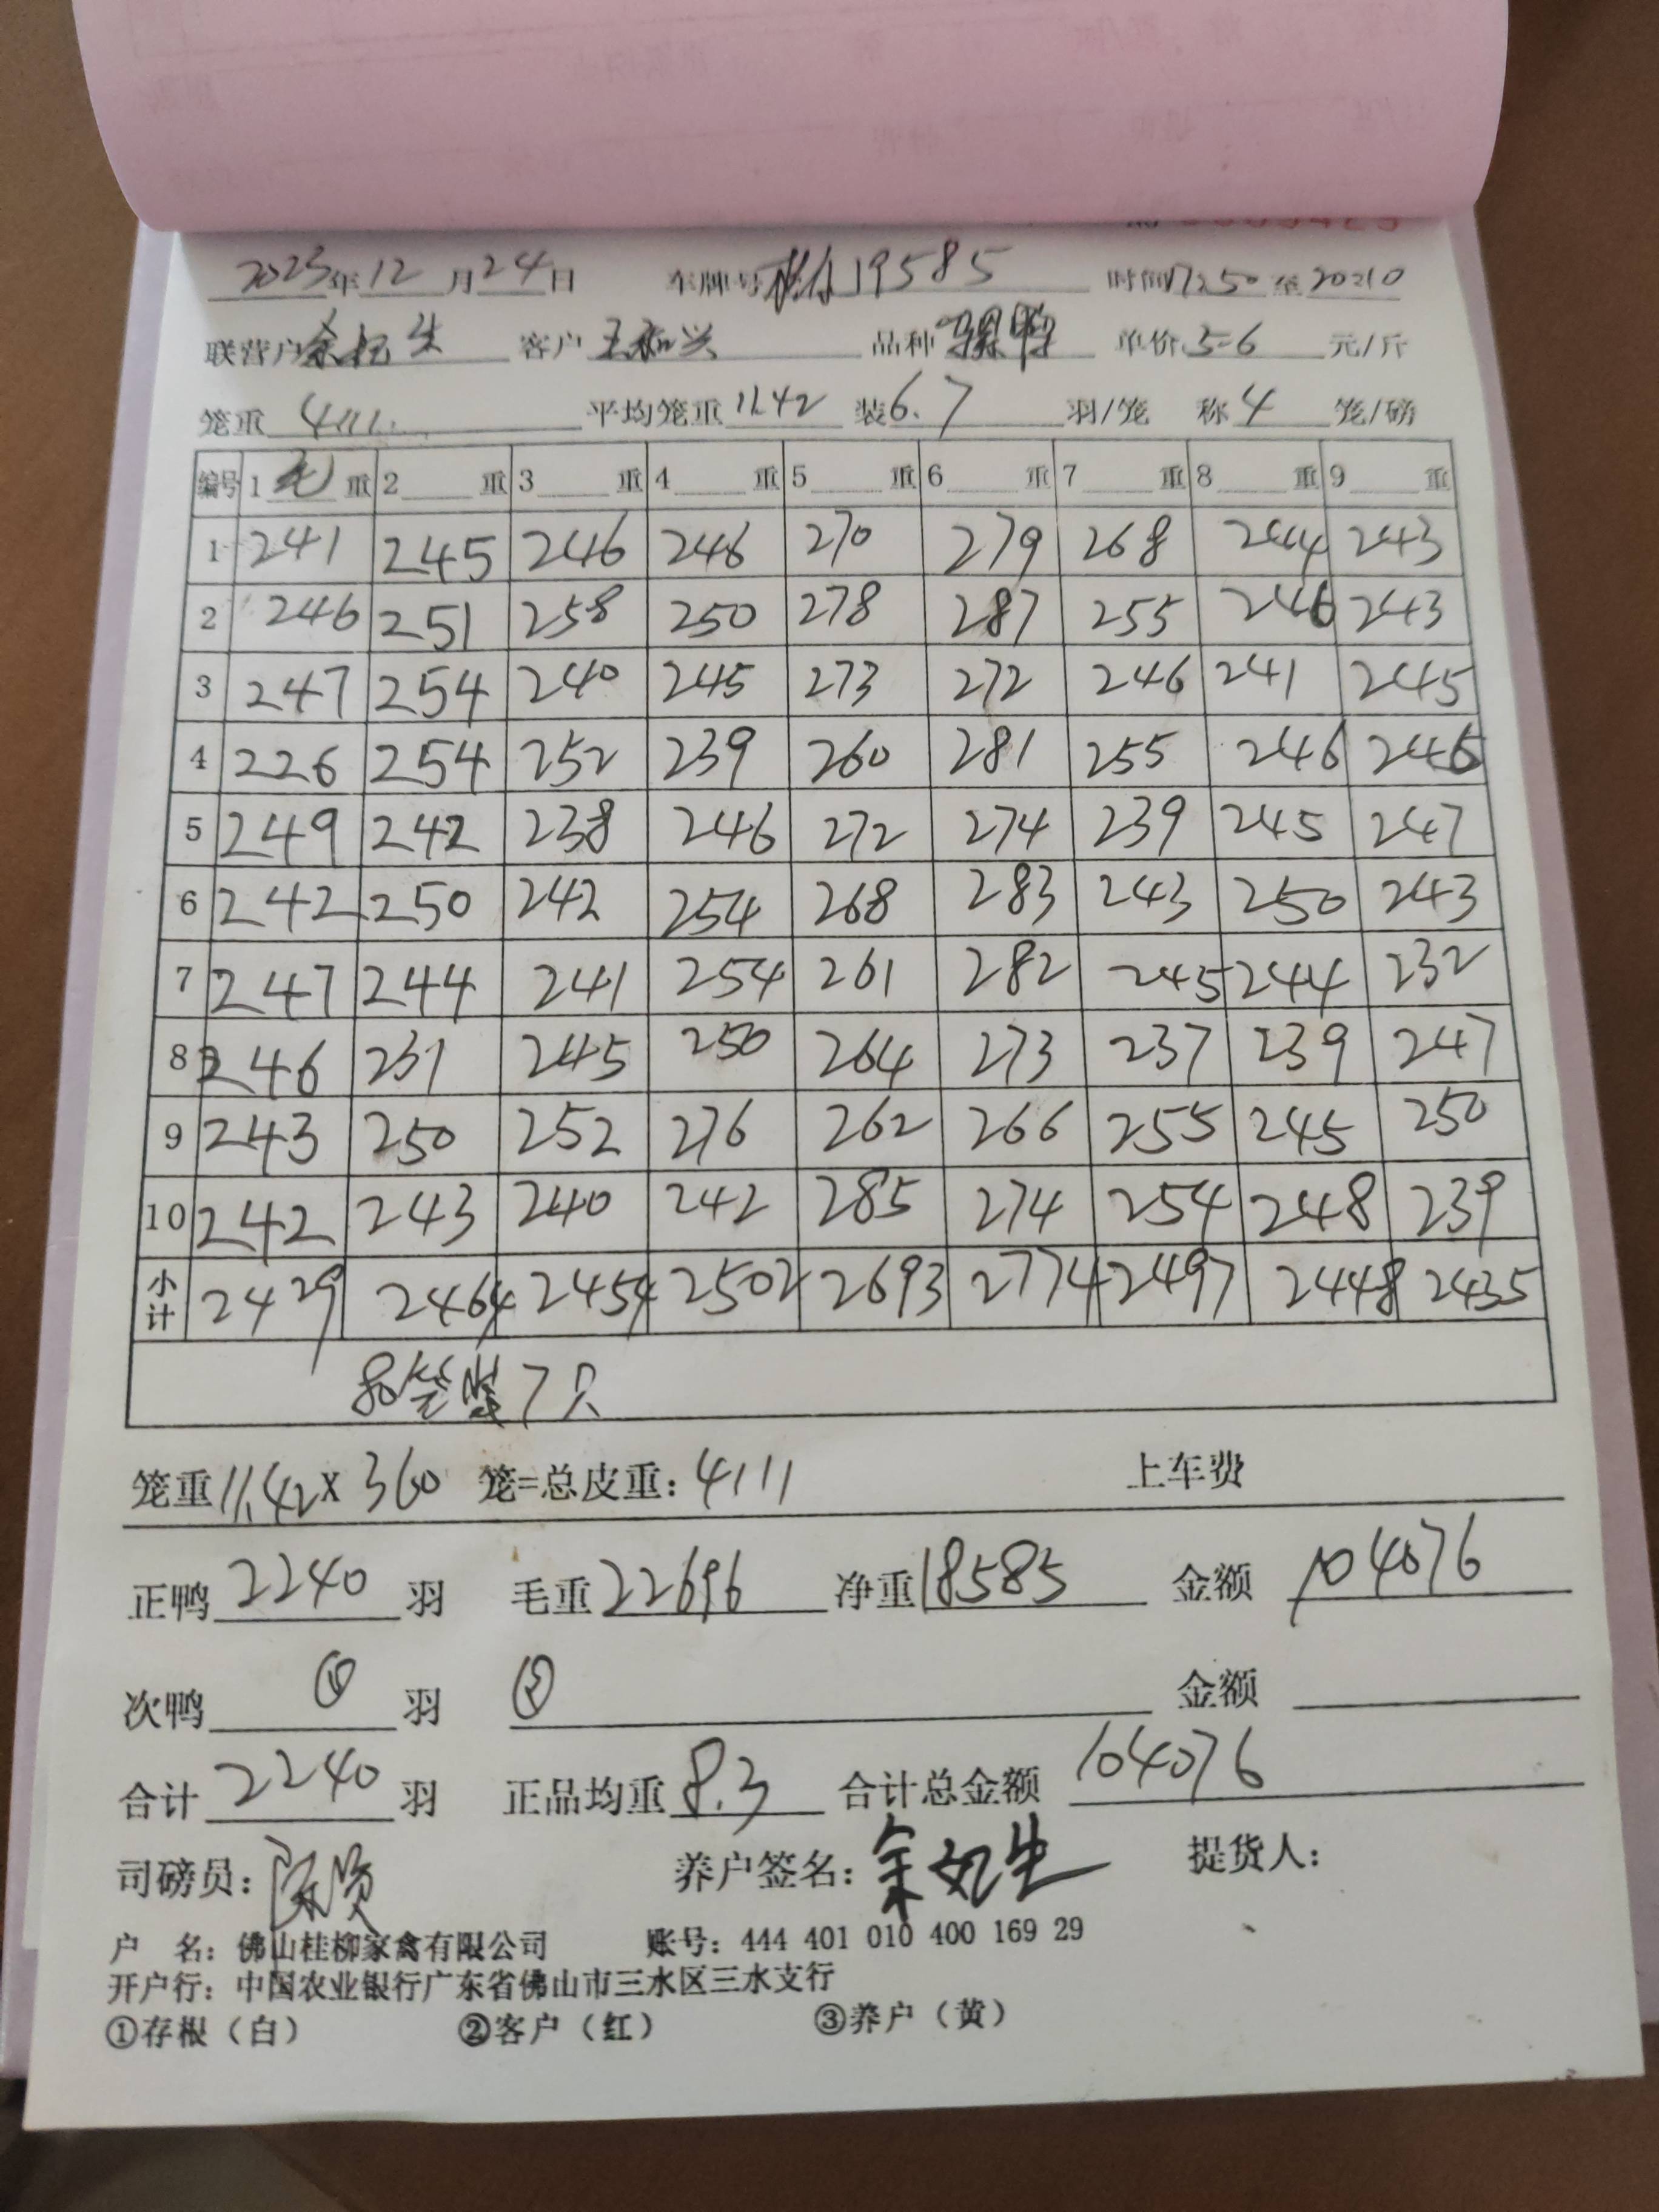 2023年12月24日 车牌号 19585 时间17:50至20:10
联营户 客户王和兴 品种骡鸭 单价5.6元/斤
笼重4111 平均笼重11.42 装6.7羽/笼 称4笼/磅
编号 1毛重 2重 3重 4重 5重 6重 7重 8重 9重
1 241 245 246 246 270 279 268 244 243
2 246 251 258 250 278 287 255 246 243
3 247 254 240 245 273 272 246 241 245
4 226 254 252 239 260 281 255 246 246
5 249 242 238 246 272 274 239 245 247
6 242 250 242 254 268 283 243 250 243
7 247 244 241 254 261 282 245 244 232
8 246 231 245 250 264 273 237 239 247
9 243 250 252 276 262 266 255 245 250
10 242 243 240 242 285 274 254 248 239
小计 2429 2464 2454 2502 2693 2774 2497 2448 2435
80笼装7只
笼重11.42X360笼=总皮重：4111 上车费
正鸭2240羽 毛重22696 净重18585 金额104076
次鸭 羽 金额
合计2240羽 正品均重8.3 合计总金额104076
司磅员： 养户签名： 提货人：
户 名：佛山桂柳家禽有限公司 账号：444 401 010 400 169 29
开户行：中国农业银行广东省佛山市三水区三水支行
①存根（白） ②客户（红） ③养户（黄）